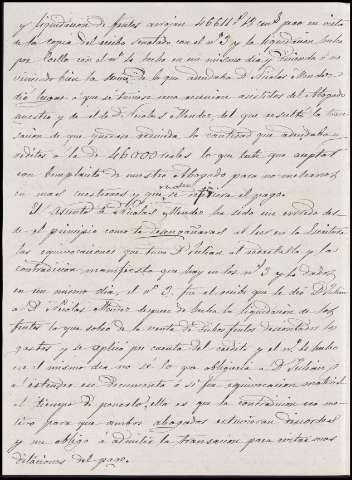 y liquidacion de frutos arrojan 46611 rs 13 cents pero en vista
de la copia del recibo señalado con el nº 3 y la liquidacion hecha
por Coello con el nº 4 hecha en un mismo dia y
viniendo bien la suma de lo que adeudaba Dn Nicolas Mendez
dió lugar á que se tuviese una reunion asistidos del Abogado
nuestro y de el de Dn Nicolas Mendez, del que resultó la tran-
sacion de que quedase reducida la cantidad que adeudaba
á la de 46.000 reales lo que tube que aceptar
con beneplacito de nuestro Abogado para no meternos
en mas cuestiones y que se
retrasara el pago.
El asunto de Nicolas Mendez ha sido un enredo des-
de el principio como te desengañarás al leer en la Escritura
las equivocaciones que tuvo Dn Julian al redactarla y las
contradicion manifiesta que hay en los nº 3 y 4 dados
en un mismo dia: el nº 3 fué el recibo que le dió Dn Julian
á Dn Nicolas Muñoz despues de hecha la liquidacion de los
frutos lo que sobró de la venta de dichos frutos descontados los
gastos y se aplicó por cuenta del credito y el nº 4 hecho
en el mismo dia no sé lo que obligaria á Dn Julian
á estender ese documento ó si fué equivocacion
al tiempo de ponerlo, ello es que la contradicion mo-
tivo para que ambos abogados estuvieran discordes
y me obligó á admitir la transacion para evitar mas
dilaciones del pago.